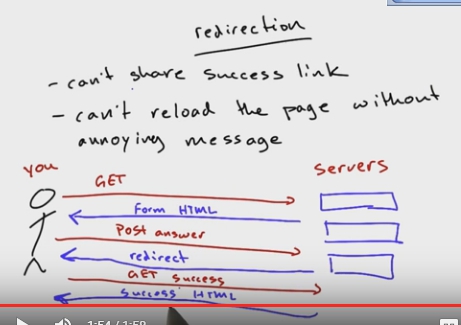 redirection
- can't share success link
- can't reload the page without
annoying message
you
servers
GET
form HTML
Post answer
redirect
GET success
success HTML
1:54 / 1:58
CC